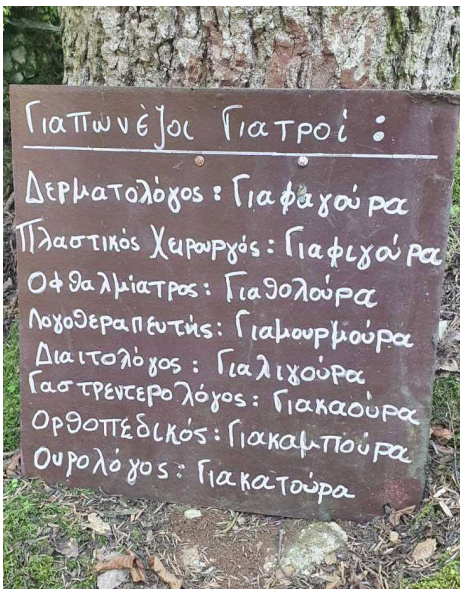 Γιαπωνέζοι Γιατροί :
Δερματολόγος : Γιαφαγούρα
Πλαστικός Χειρουργός : Γιαφιγούρα
Οφθαλμίατρος : Γιαθολούρα
Λογοθεραπευτής : Γιαμουρμούρα
Διαιτολόγος : Γιαλιγούρα
Γαστρεντερολόγος : Γιακαούρα
Ορθοπεδικός : Γιακαμπούρα
Ουρολόγος : Γιακατούρα